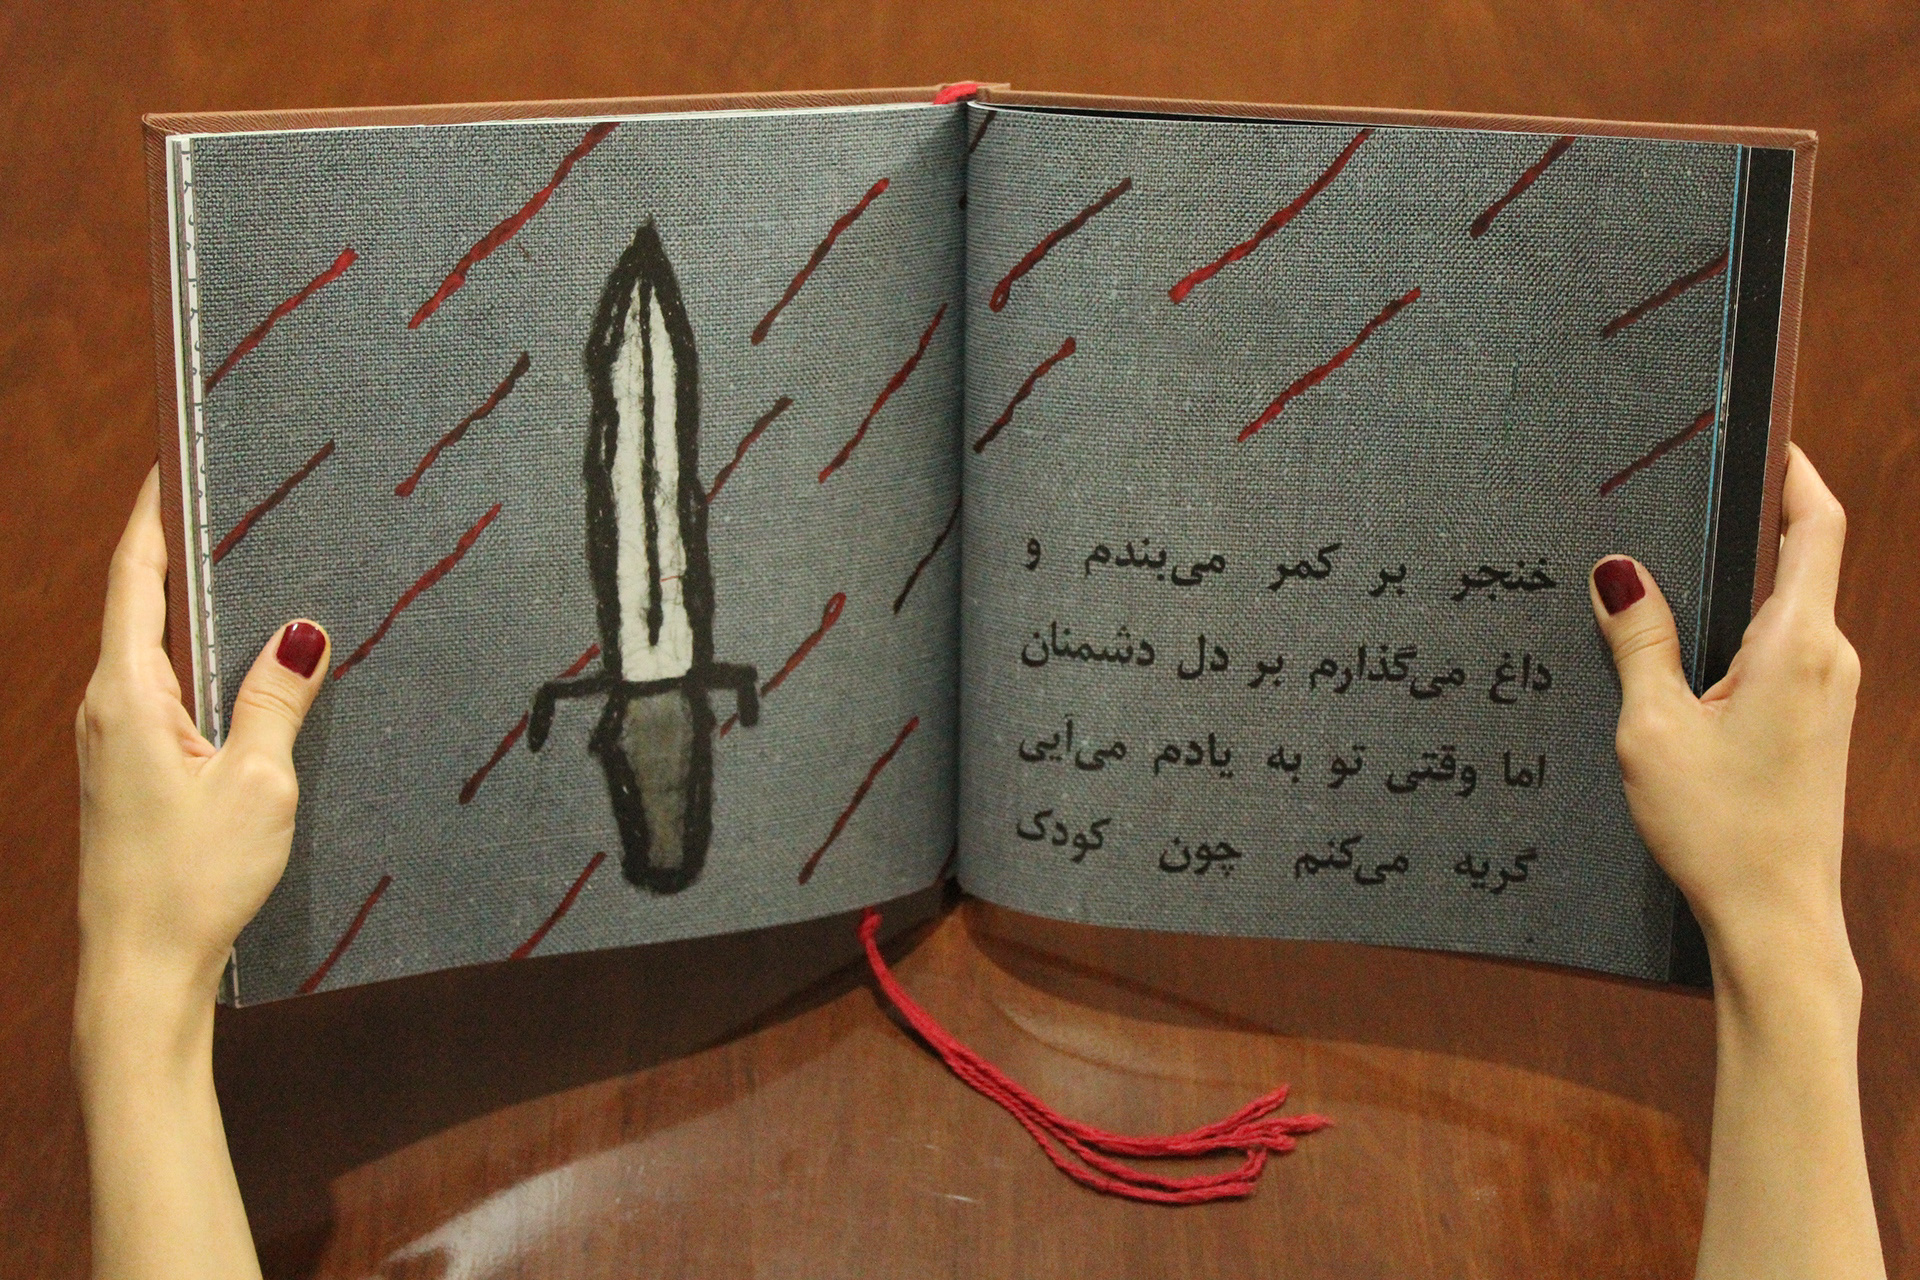 خنجر بر کمر می‌بندم و
داغ می‌گذارم بر دل دشمنان
اما وقتی تو به یادم می‌آیی
گریه می‌کنم چون کودک